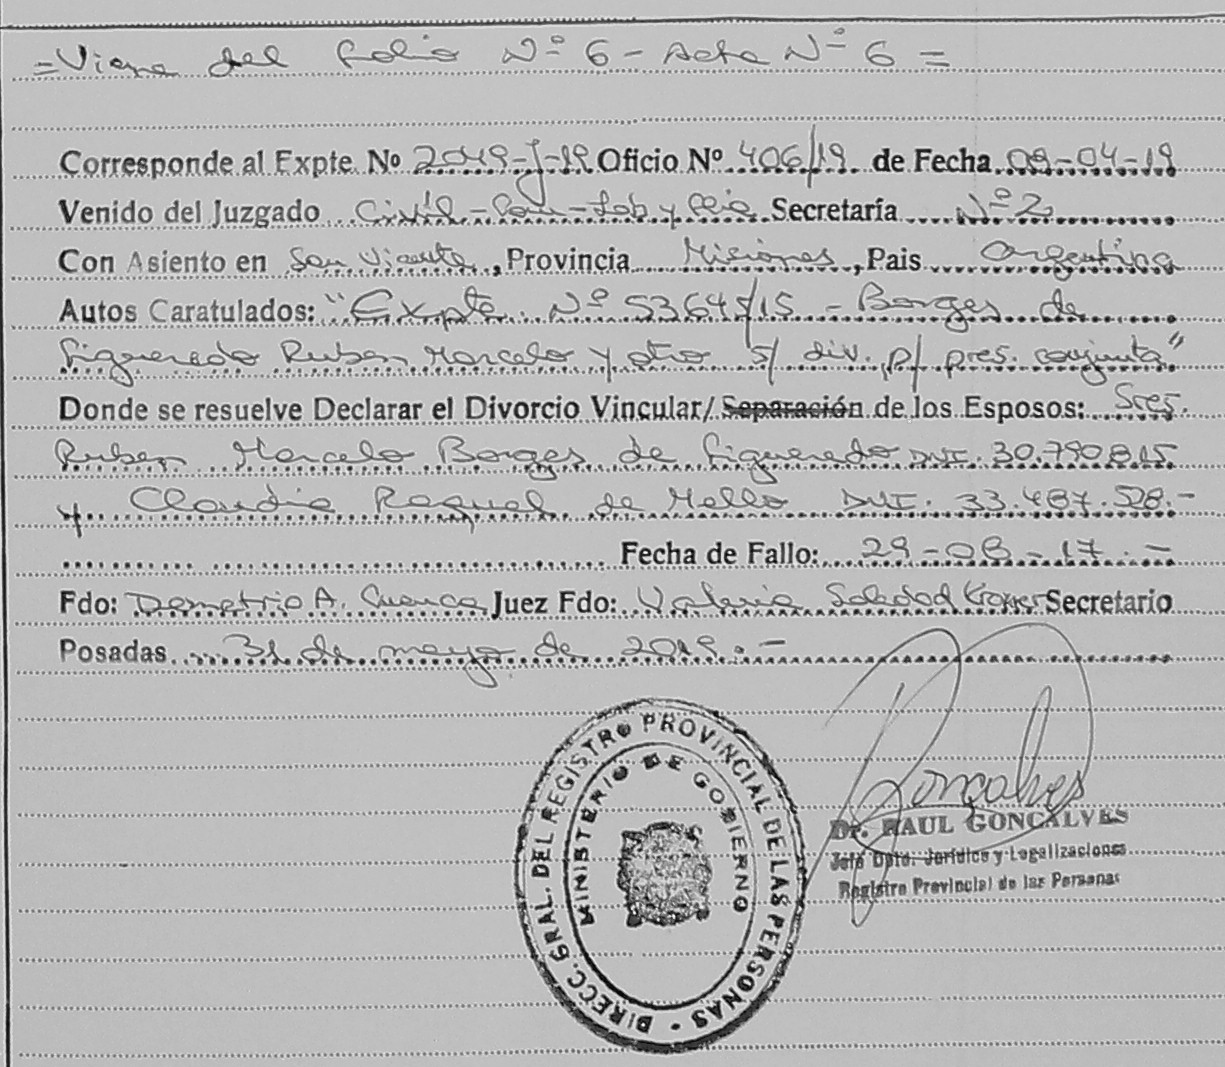 =Viene del folio Nº 6 - Acta Nº 6 =
Corresponde al Expte. Nº 2049-J-19 Oficio Nº 406/19 de Fecha 09-04-19
Venido del Juzgado Civil - Com - Lab y Flia Secretaría Nº 2
Con Asiento en San Vicente, Provincia Misiones, Pais Argentina
Autos Caratulados: "Expte. Nº 53645/15 - Borges de
Figueredo Ruben Marcelo y otro s/ div. p/ pres. conjunta"
Donde se resuelve Declarar el Divorcio Vincular/ Separación de los Esposos: Sres.
Ruben Marcelo Borges de Figueredo DNI. 30.790.815
y Claudia Raquel de Mello DNI. 33.487.528.-
Fecha de Fallo: 29-08-17.-
Fdo: Demetrio A. Cuenca Juez Fdo: Valeria Soledad Secretario
Posadas 31 de mayo de 2019.-
DIRECC. GRAL. DEL REGISTRO PROVINCIAL DE LAS PERSONAS -
MINISTERIO DE GOBIERNO
Goncalves
Dr. RAUL GONCALVES
Jefe Dpto. Jurídico y Legalizaciones
Registro Provincial de las Personas